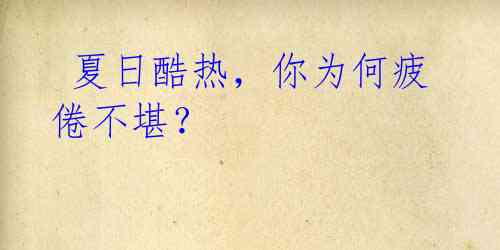 夏日酷热，你为何疲
倦不堪？